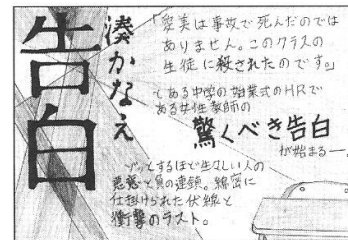 告白
湊かなえ
「愛美は事故で死んだのでは
ありません。このクラスの
生徒に殺されたのです。」
とある中学の始業式のHRで
ある女性教師の
驚くべき告白
が始まる―。
ゾッとするほど生々しい人の
悪意と負の連鎖。綿密に
仕掛けられた伏線と
衝撃のラスト。